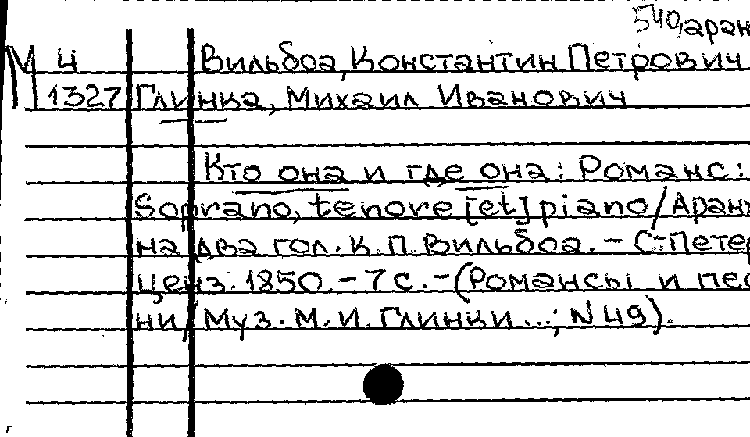 540, аран
М 4 Вильбоа, Константин Петрович
1327 Глинка, Михаил Иванович
Кто она и где она: Романс:
Soprano, tenore [et] piano / Аран
на два гол. К.П. Вильбоа. – С-Петер
ценз. 1850. – 7 с. – (Романсы и пес
ни / Муз. М.И. Глинки...; N 49).